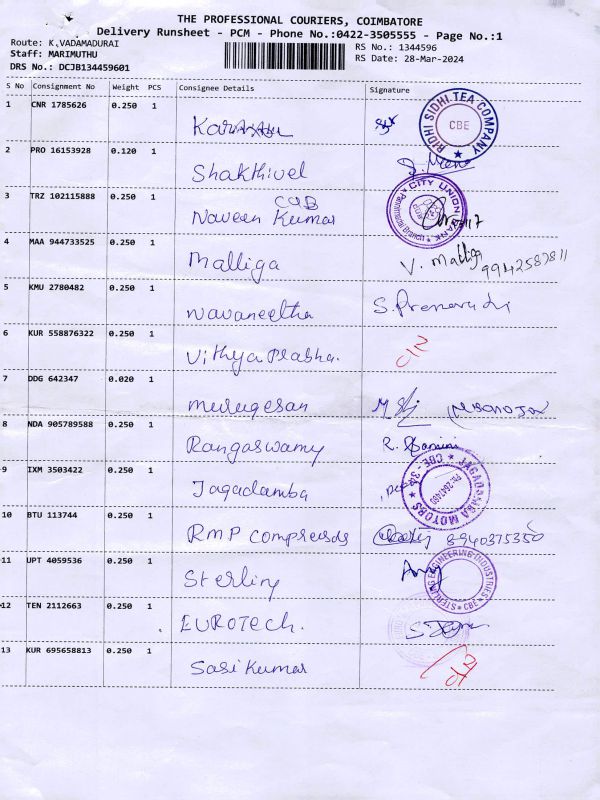 THE PROFESSIONAL COURIERS, COIMBATORE
Delivery Runsheet - PCM - Phone No.:0422-3505555 - Page No.:1
Route: K.VADAMADURAI
Staff: MARIMUTHU
DRS No.: DCJB134459601
RS No.: 1344596
RS Date: 28-Mar-2024
S No Consignment No Weight PCS Consignee Details Signature
1 CNR 1785626 0.250 1
RIDHI SIDHI TEA COMPANY
CBE
2 PRO 16153928 0.120 1 Shakthivel
3 TRZ 102115888 0.250 1 CUB
Naveen Kumar
CITY UNION BANK
4 MAA 944733525 0.250 1 Malliga V. Malliga
5 KMU 2780482 0.250 1 Navaneetha
6 KUR 558876322 0.250 1 Vithya Prabha.
7 DDG 642347 0.020 1 Murugesan
8 NDA 905789588 0.250 1 Rangaswamy
9 IXM 3503422 0.250 1 Jagadamba
JAGADAMBA MOTORS
CBE - 34
10 BTU 113744 0.250 1 RMP 8940375350
11 UPT 4059536 0.250 1 Sterling
STERLING ENGINEERING INDUSTRIES
CBE
12 TEN 2112663 0.250 1 EUROTECH.
13 KUR 695658813 0.250 1 Sasikumar